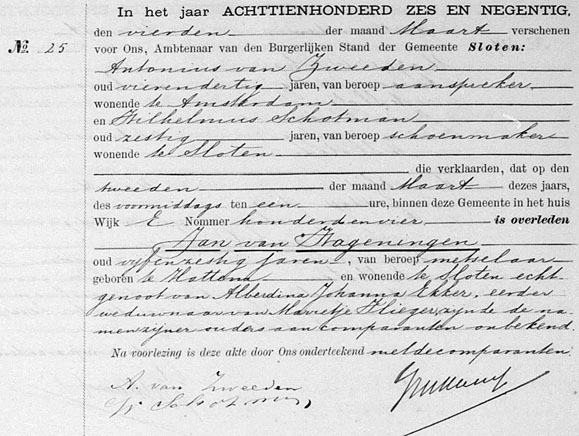 In het jaar ACHTTIENHONDERD ZES EN NEGENTIG,
den vierden der maand Maart verschenen
№ 25 voor Ons, Ambtenaar van den Burgerlijken Stand der Gemeente Sloten:
Antonius van Zweeden
oud vierendertig jaren, van beroep aanspreker
wonende te Amsterdam
en Wilhelmus Schotman
oud zestig jaren, van beroep schoenmaker
wonende te Sloten
die verklaarden, dat op den
tweeden der maand Maart dezes jaars,
des voormiddags ten een ure, binnen deze Gemeente in het huis
Wijk E Nommer honderdenvier is overleden
Jan van Wageningen
oud vijfenzestig jaren, van beroep metselaar
geboren te Hattem en wonende te Sloten echt-
genoot van Alberdina Johanna Ekker, eerder
weduwnaar van Marretje Vlieger, zijnde de na-
men zijner ouders aan comparanten onbekend.
Na voorlezing is deze akte door Ons onderteekend met de comparanten.
A. van Zweeden
W Schotman